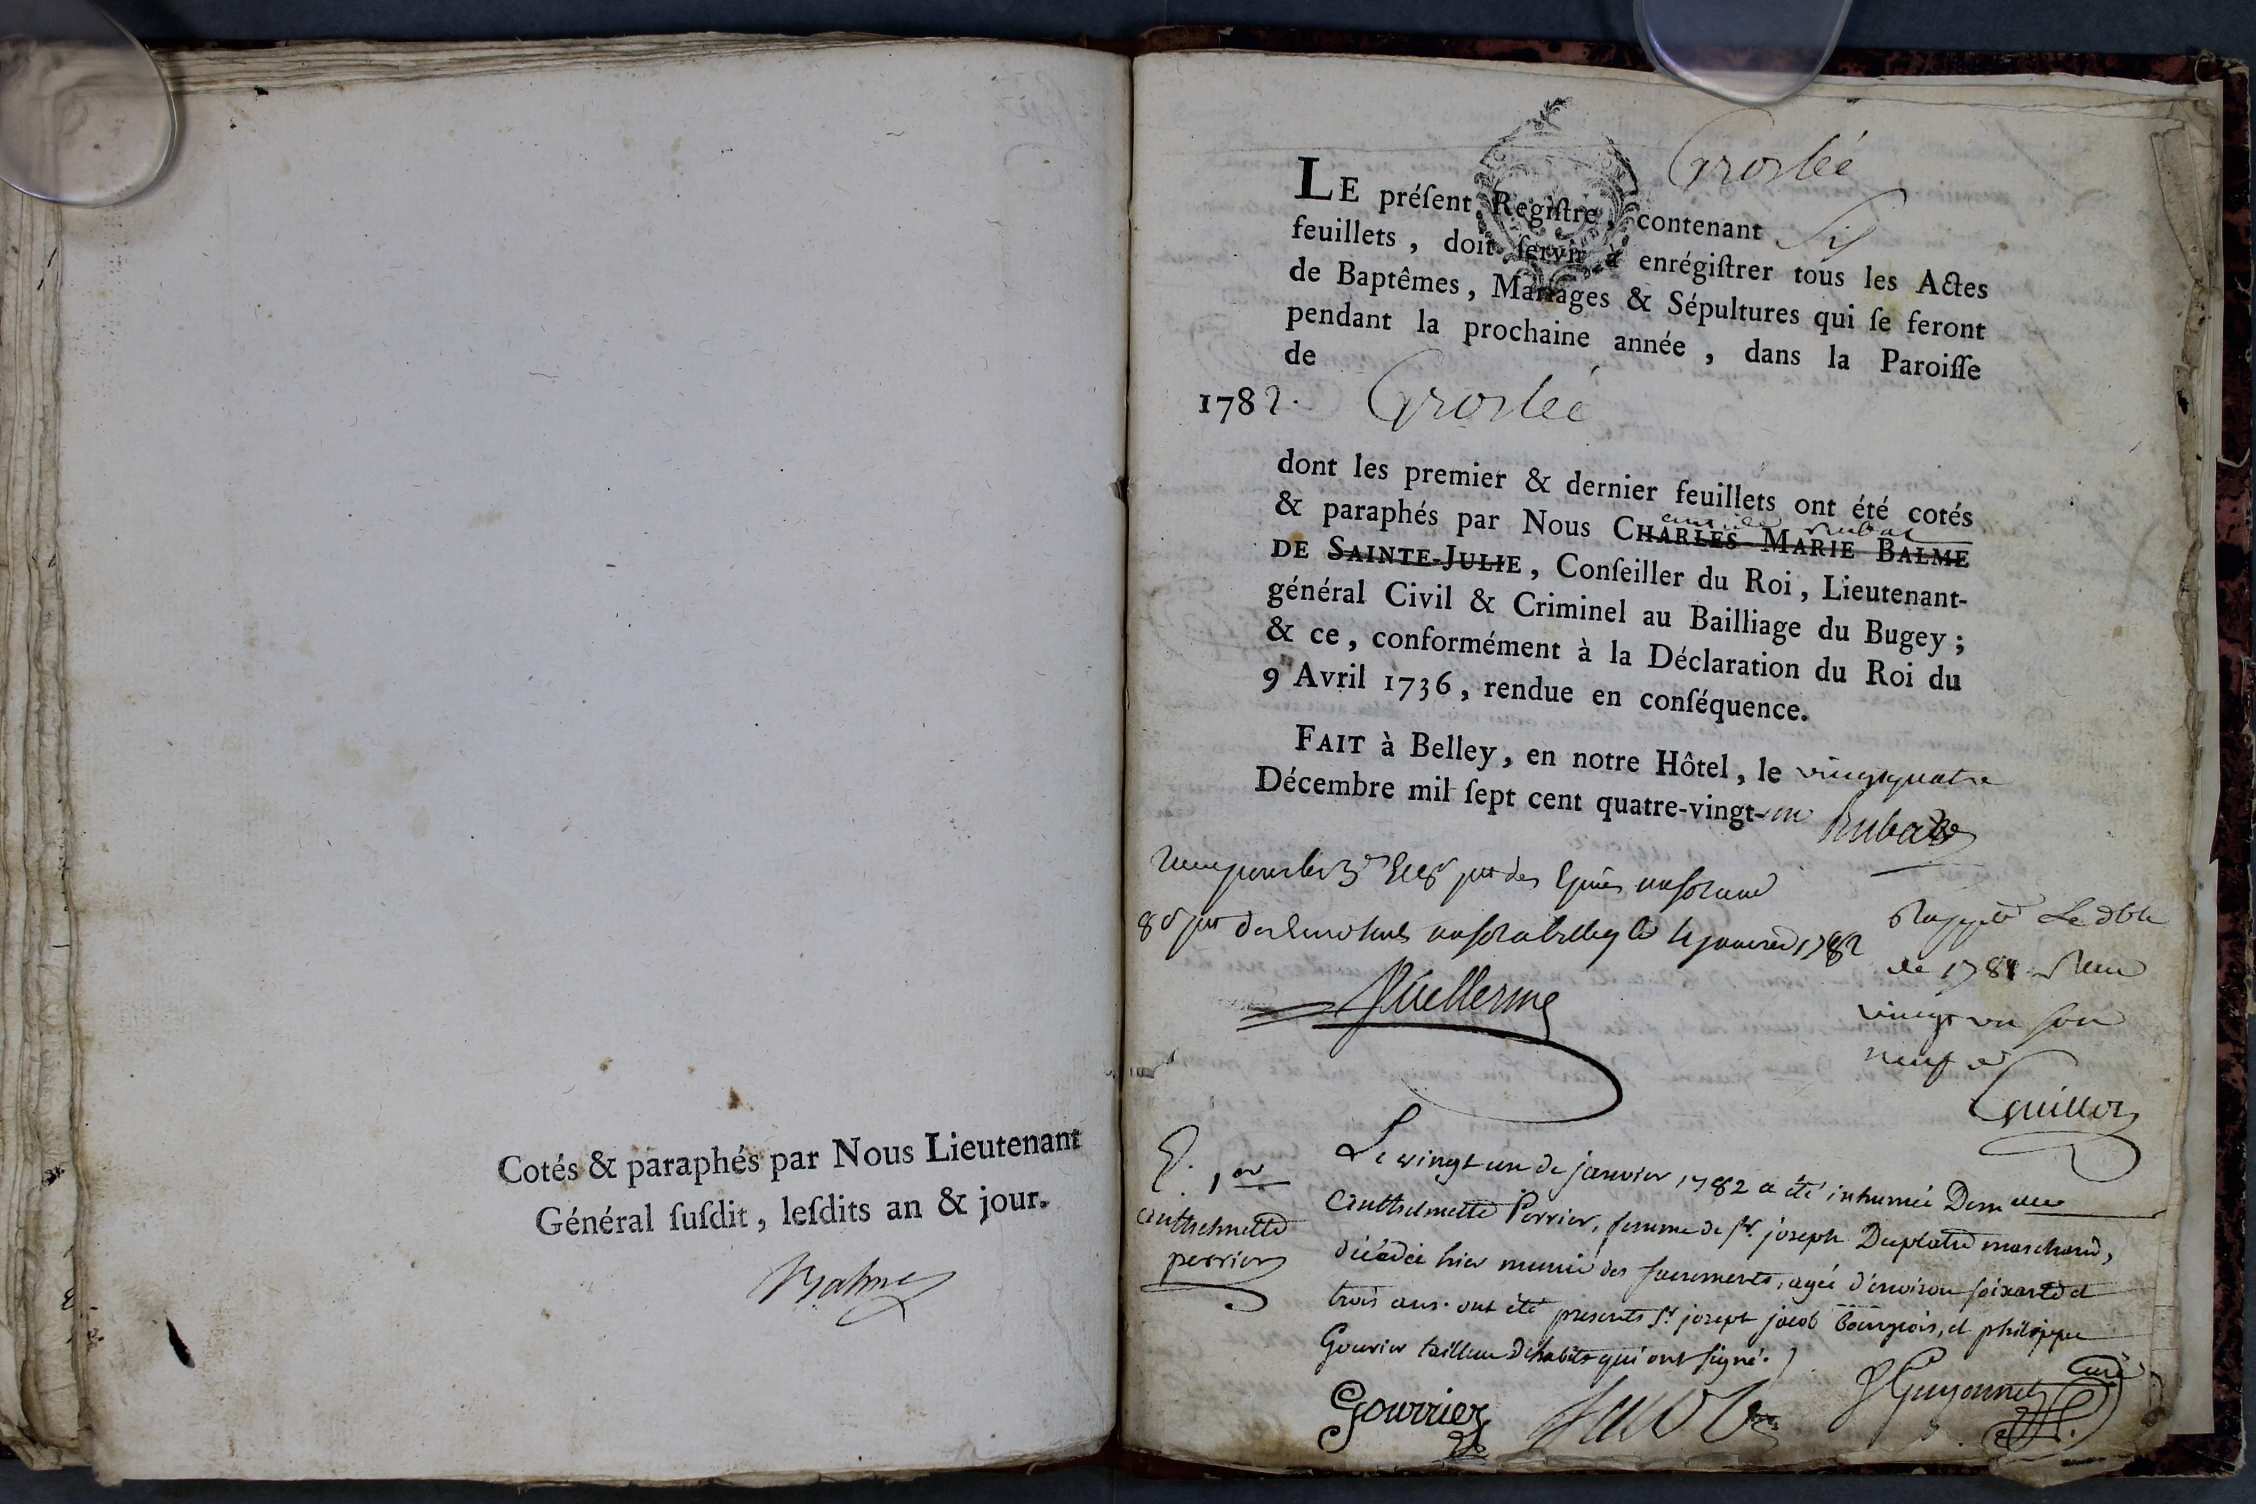 Cotés & paraphés par Nous Lieutenant
Général ſuſdit, leſdits an & jour.
Balme
Groslée
LE préſent Regiſtre, contenant Six
feuillets, doit ſervir à enrégiſtrer tous les Actes
de Baptêmes, Mariages & Sépultures qui ſe feront
pendant la prochaine année, dans la Paroiſſe
de
1782. Groslée
dont les premier & dernier feuillets ont été cotés
& paraphés par Nous CHARLES-MARIE BALME
DE SAINTE-JULIE, Conſeiller du Roi, Lieutenant-
général Civil & Criminel au Bailliage du Bugey;
& ce, conformément à la Déclaration du Roi du
9 Avril 1736, rendue en conſéquence.
FAIT à Belley, en notre Hôtel, le vingtquatre
Décembre mil ſept cent quatre-vingt-un Rubat
a belley le 4 janvier 1782
Guillerme
Le dble
de 1781
vingt un sou
neuf d
Guillot
S. 1er
Anthelmette
perrier
Le vingt un de janvier 1782 a été inhumée Dem elle
Anthelmette Perrier, femme de sr. joseph Duplatre marchand,
décédée hier munie des sacrements, agée d'environ soixante et
trois ans. ont été presents sr joseph jacob Bourgeois, et philippe
Gourier tailleur d'habits qui ont signé.
Gourrier Jacob J Guyonnet Curé